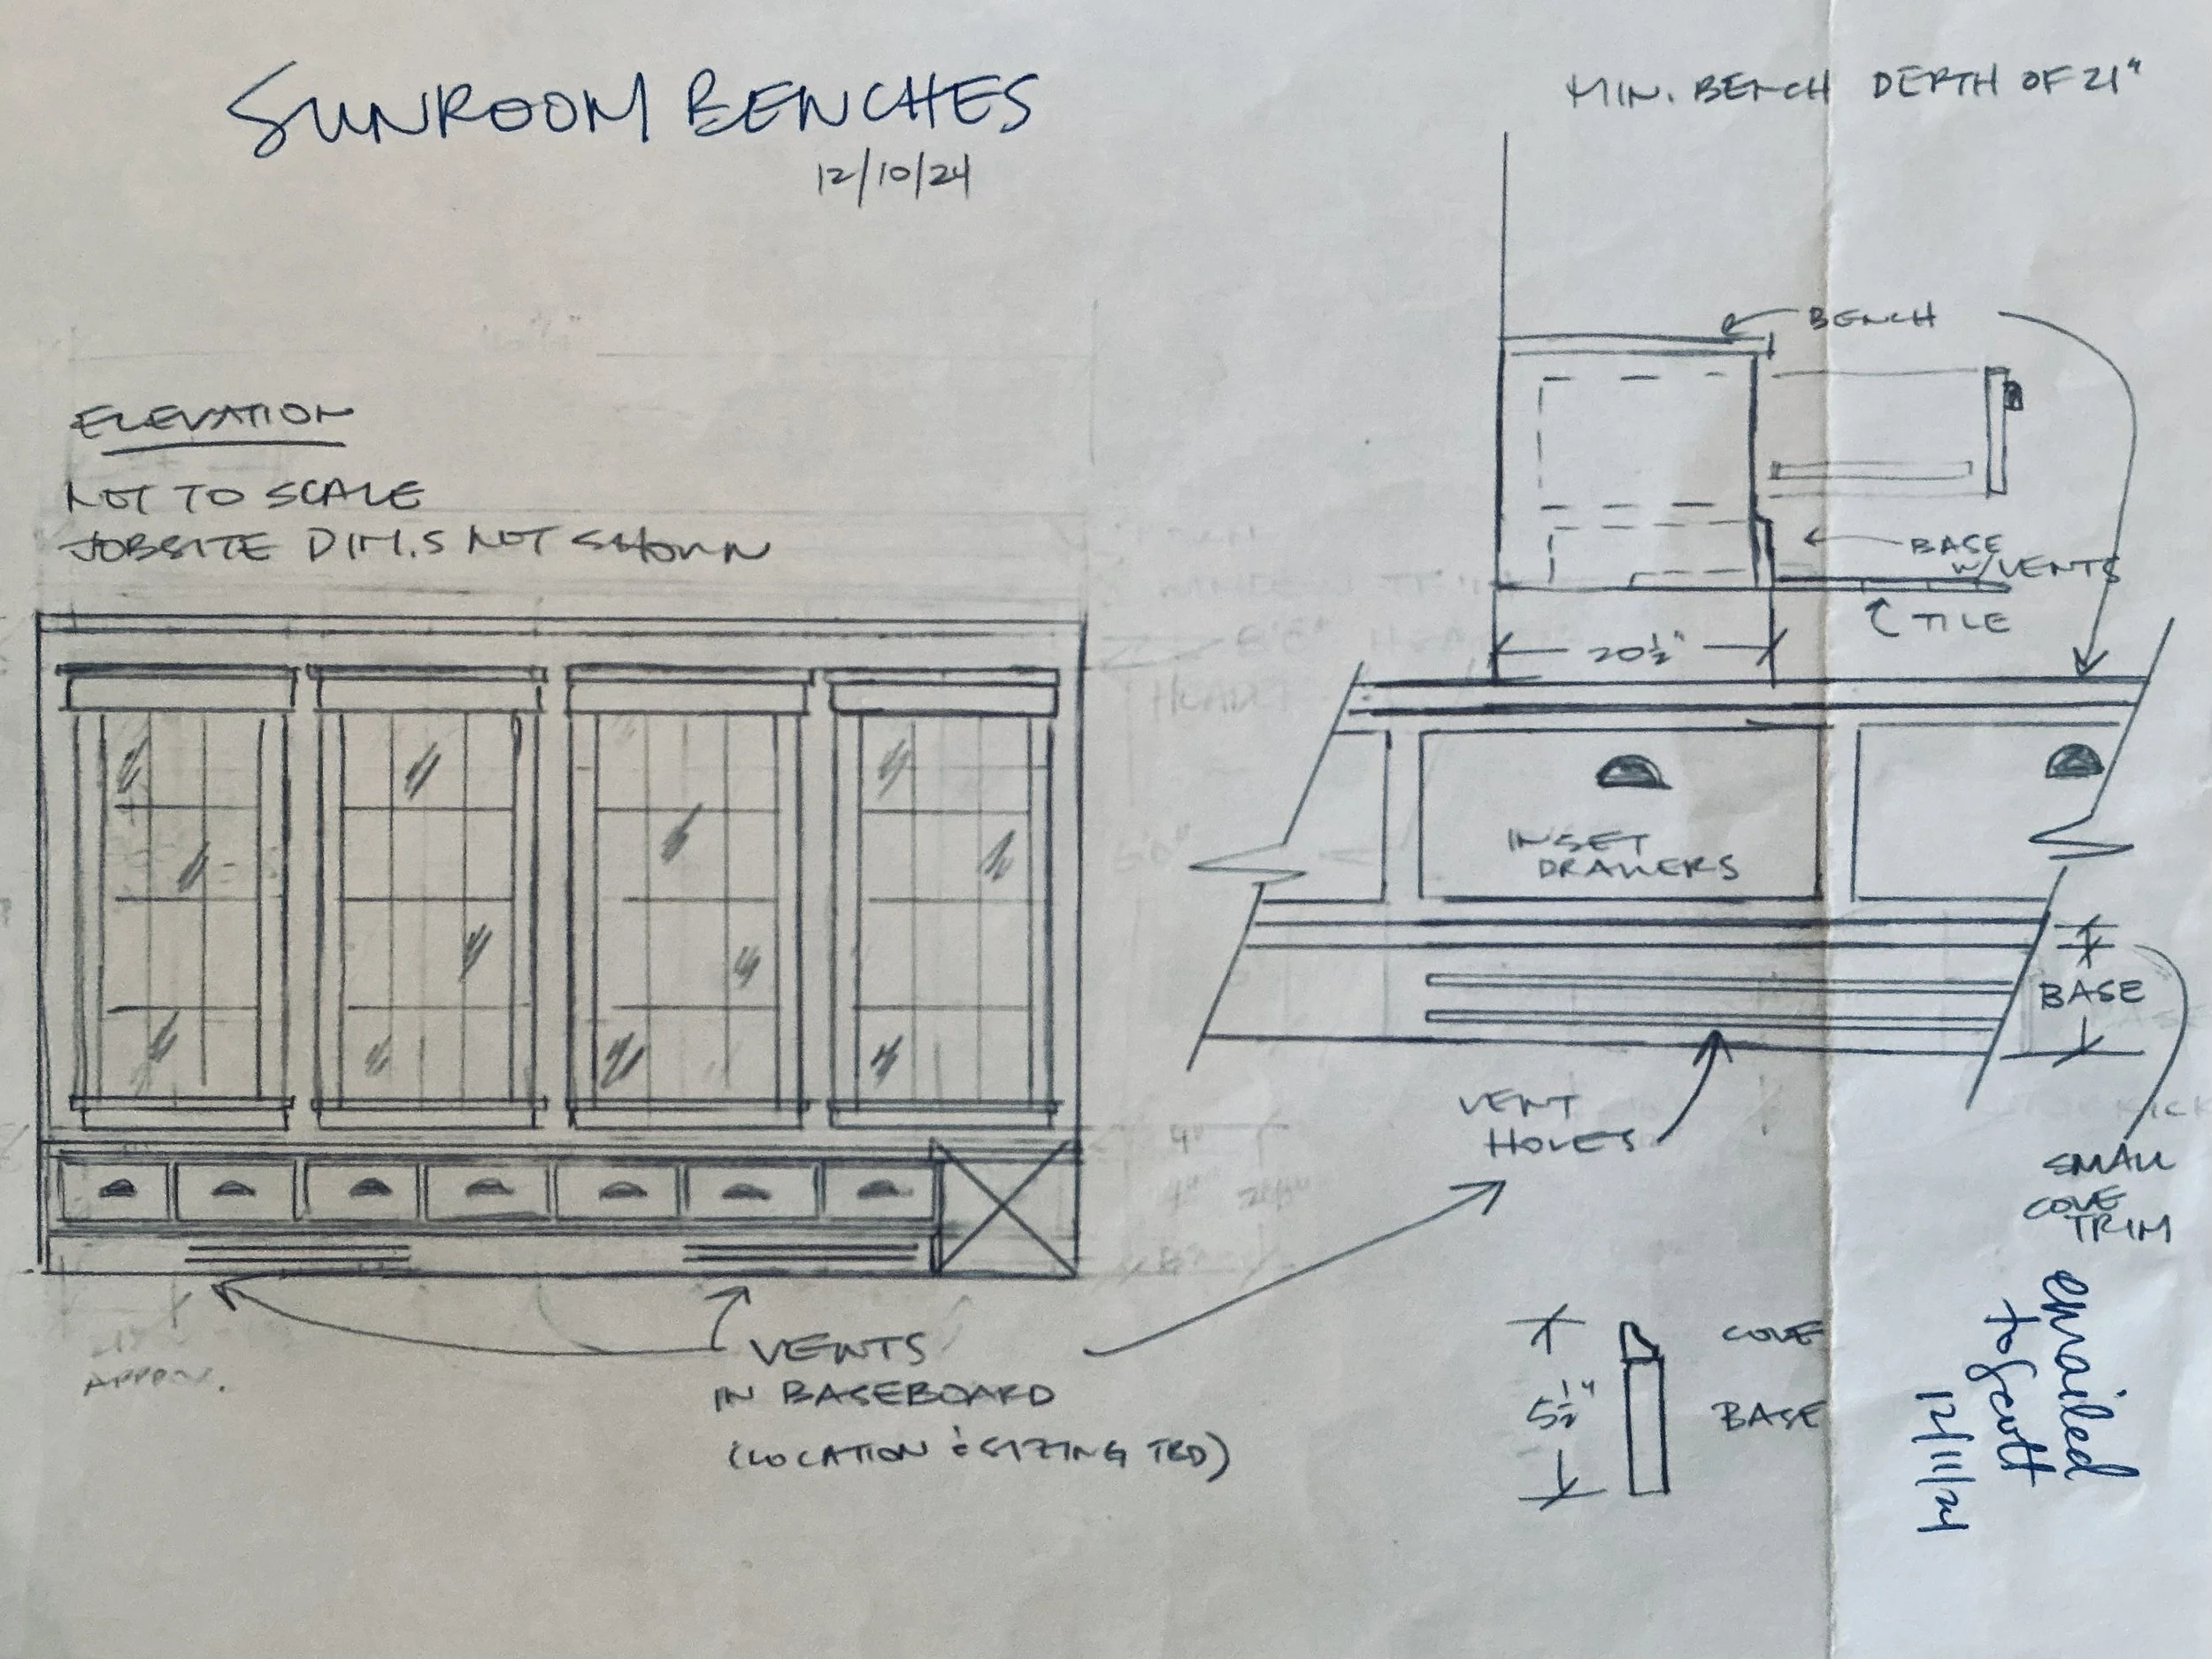 SUNROOM BENCHES
12/10/24
MIN. BENCH DEPTH OF 21"
ELEVATION
NOT TO SCALE
JOBSITE DIM.S NOT SHOWN
BENCH
BASE
W/VENTS
TILE
20½"
INSET
DRAWERS
BASE
VENT
HOLES
SMALL
COVE
TRIM
VENTS
IN BASEBOARD
(LOCATION & SIZING TBD)
APPROX.
COVE
5½"
BASE
emailed
to Scott
12/11/24